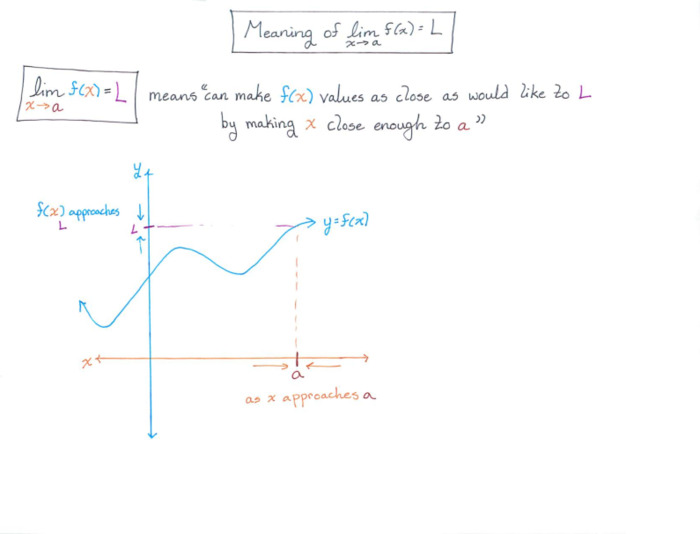 Meaning of lim x→a f(x) = L
lim x→a f(x) = L means "can make f(x) values as close as would like to L
by making x close enough to a"
y
f(x) approaches L
L
y=f(x)
x
a
as x approaches a